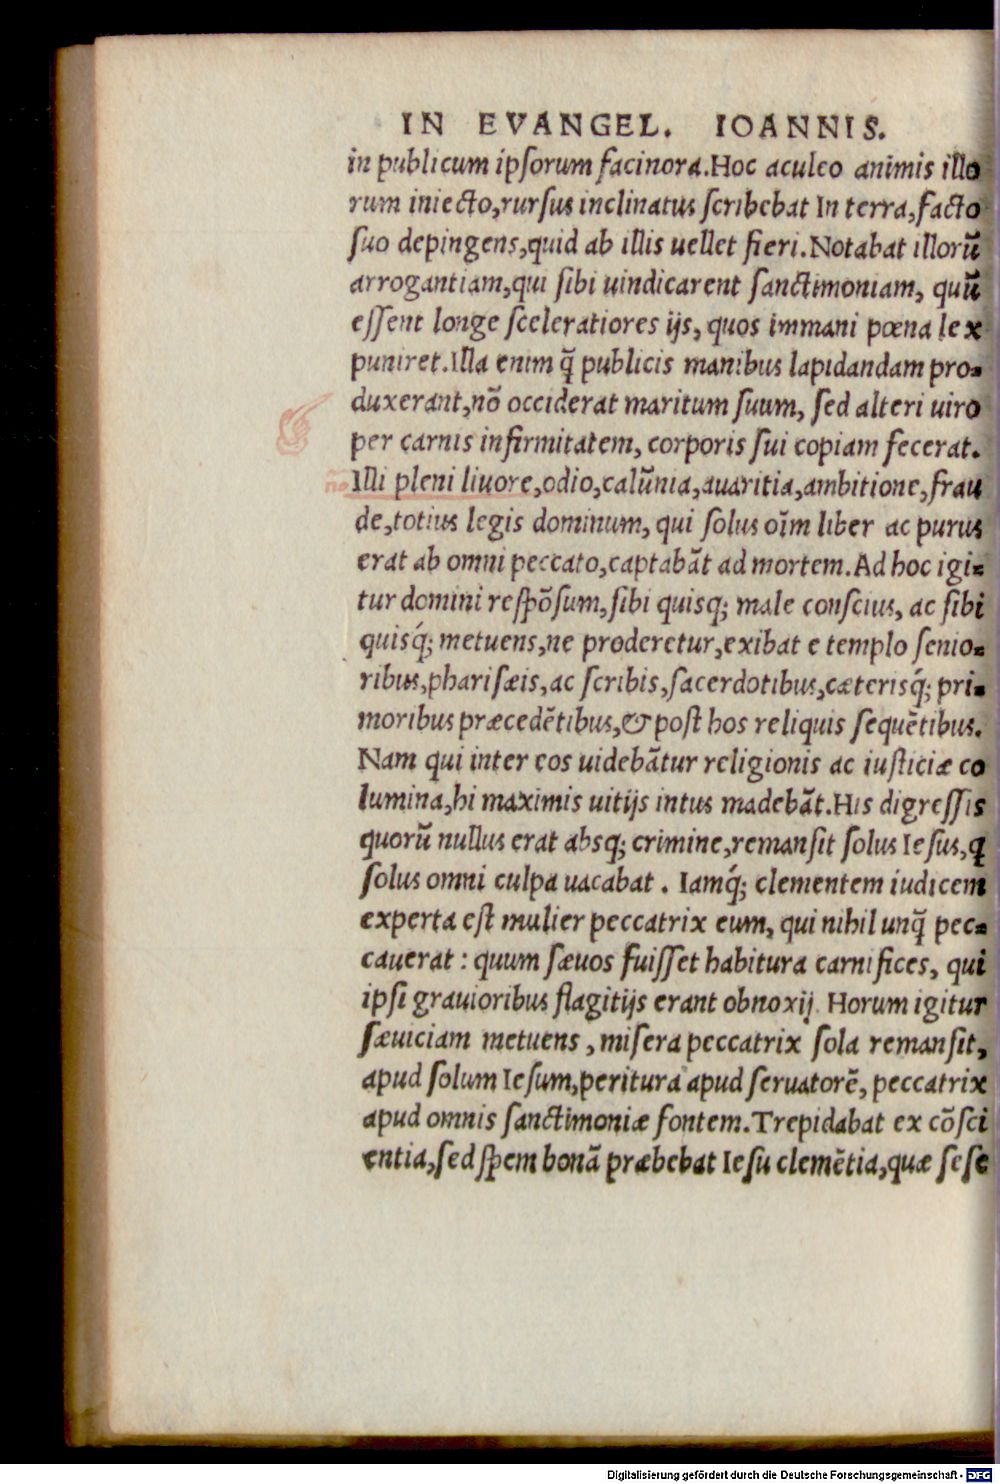 IN EVANGEL. IOANNIS.
in publicum ipſorum facinora.Hoc aculeo animis illo
rum iniecto,rurſus inclinatus ſcribebat In terra,facto
ſuo depingens,quid ab illis uellet fieri.Notabat illorũ
arrogantiam,qui ſibi uindicarent ſanctimoniam, quũ
eſſent longe ſceleratiores ijs, quos immani pœna lex
puniret.Illa enim q̃ publicis manibus lapidandam pro-
duxerant,nõ occiderat maritum ſuum, ſed alteri uiro
per carnis infirmitatem, corporis ſui copiam fecerat.
Illi pleni liuore,odio,calũnia,auaritia,ambitione,frau
de,totius legis dominum, qui ſolus oĩm liber ac purus
erat ab omni peccato,captabãt ad mortem.Ad hoc igi-
tur domini reſpõſum,ſibi quisq; male conſcius, ac ſibi
quisq́; metuens,ne proderetur,exibat e templo ſenio-
ribus,phariſæis,ac ſcribis,ſacerdotibus,cæterisq́; pri-
moribus præcedẽtibus,& poſt hos reliquis ſequẽtibus.
Nam qui inter eos uidebãtur religionis ac iuſticiæ co
lumina,hi maximis uitijs intus madebãt.His digreſſis
quorũ nullus erat absq; crimine,remanſit ſolus Ieſus,q̃
ſolus omni culpa uacabat . Iamq́; clementem iudicem
experta eſt mulier peccatrix eum, qui nihil unq̃ pec-
cauerat : quum ſæuos fuiſſet habitura carnifices, qui
ipſi grauioribus flagitijs erant obnoxij. Horum igitur
ſæuiciam metuens , miſera peccatrix ſola remanſit,
apud ſolum Ieſum,peritura apud ſeruatorẽ, peccatrix
apud omnis ſanctimoniæ fontem.Trepidabat ex cõſci
entia,ſed ſpem bonã præbebat Ieſu clemẽtia,quæ ſeſe
Digitalisierung gefördert durch die Deutsche Forschungsgemeinschaft - DFG